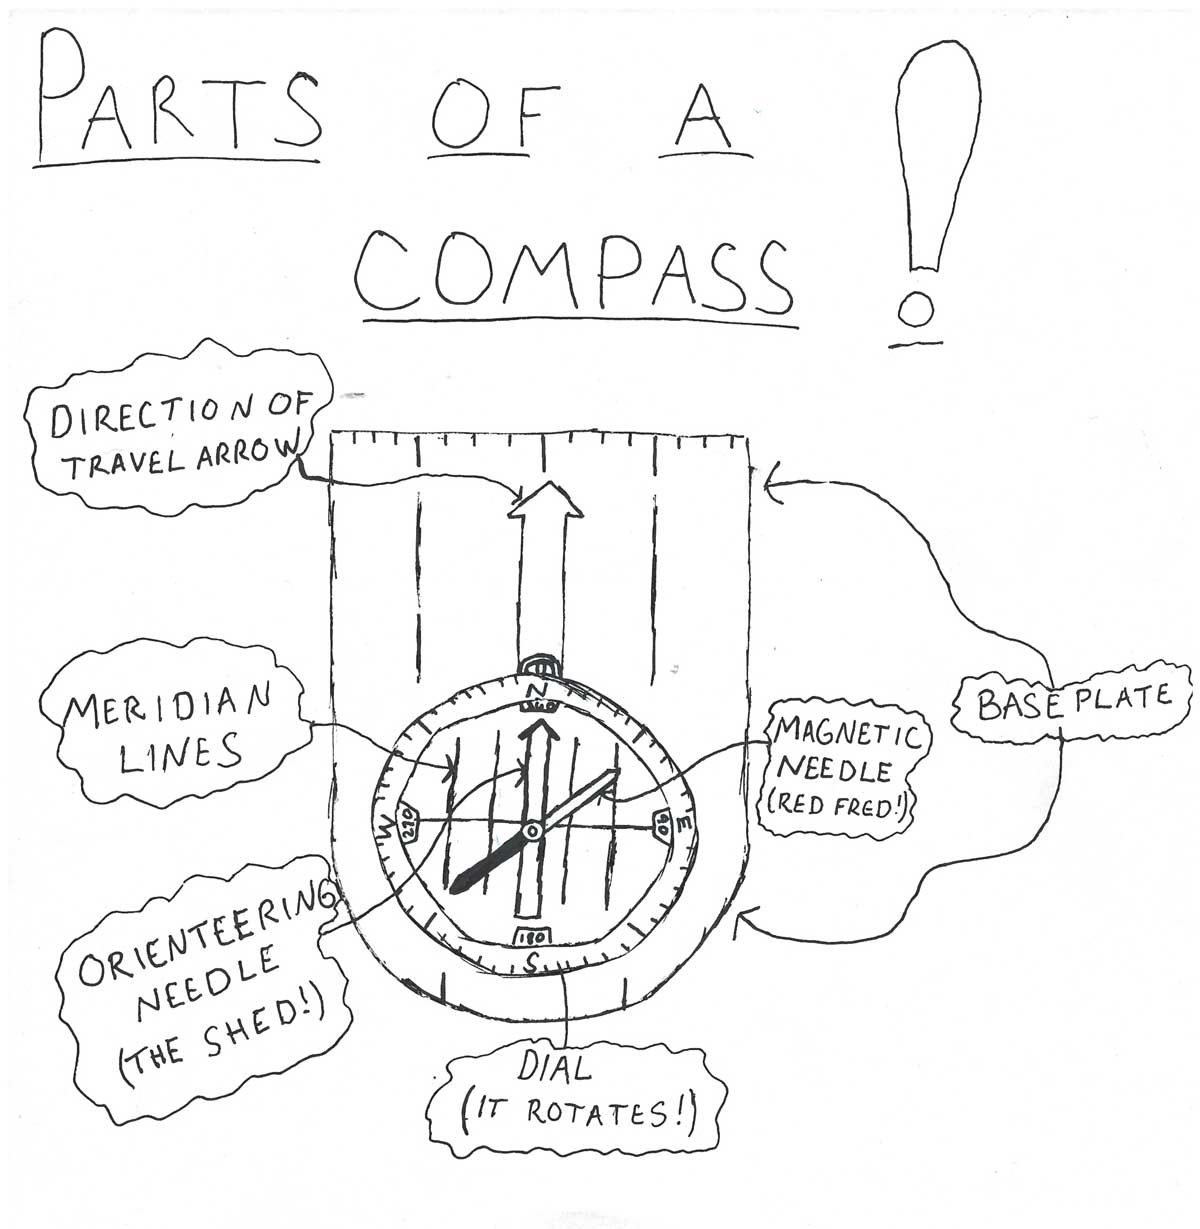 PARTS OF A
COMPASS !
DIRECTION OF
TRAVEL ARROW
MERIDIAN
LINES
N
360
MAGNETIC
NEEDLE
(RED FRED!)
BASE PLATE
W
270
90
E
ORIENTEERING
NEEDLE
(THE SHED!)
180
S
DIAL
(IT ROTATES!)